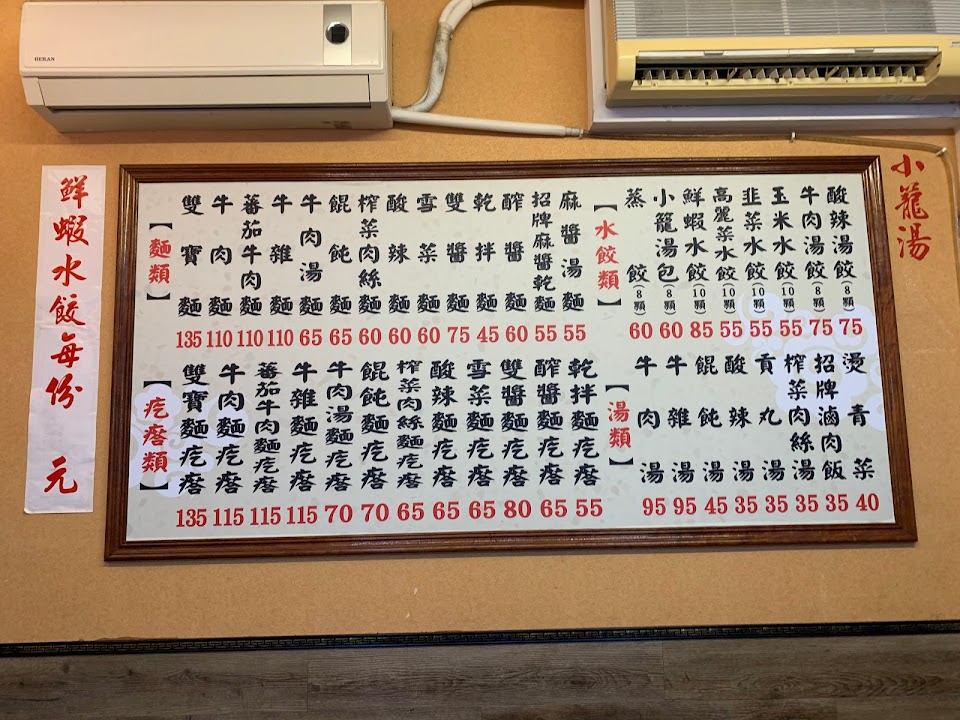 HERAN
鮮蝦水餃每份 元
小籠湯
【麵類】
雙寶麵 135
牛肉麵 110
蕃茄牛肉麵 110
牛雜麵 110
牛肉湯麵 65
餛飩麵 65
榨菜肉絲麵 60
酸辣麵 60
雪菜麵 60
雙醬麵 75
乾拌麵 45
醡醬麵 60
招牌麻醬乾麵 55
麻醬湯麵 55
【水餃類】
蒸餃(8顆) 60
小籠湯包(8顆) 60
鮮蝦水餃(10顆) 85
高麗菜水餃(10顆) 55
韭菜水餃(10顆) 55
玉米水餃(10顆) 55
牛肉湯餃(8顆) 75
酸辣湯餃(8顆) 75
【疙瘩類】
雙寶麵疙瘩 135
牛肉麵疙瘩 115
蕃茄牛肉麵疙瘩 115
牛雜麵疙瘩 115
牛肉湯麵疙瘩 70
餛飩麵疙瘩 70
榨菜肉絲麵疙瘩 65
酸辣麵疙瘩 65
雪菜麵疙瘩 65
雙醬麵疙瘩 80
醡醬麵疙瘩 65
乾拌麵疙瘩 55
【湯類】
牛肉湯 95
牛雜湯 95
餛飩湯 45
酸辣湯 35
貢丸湯 35
榨菜肉絲湯 35
招牌滷肉飯 35
燙青菜 40